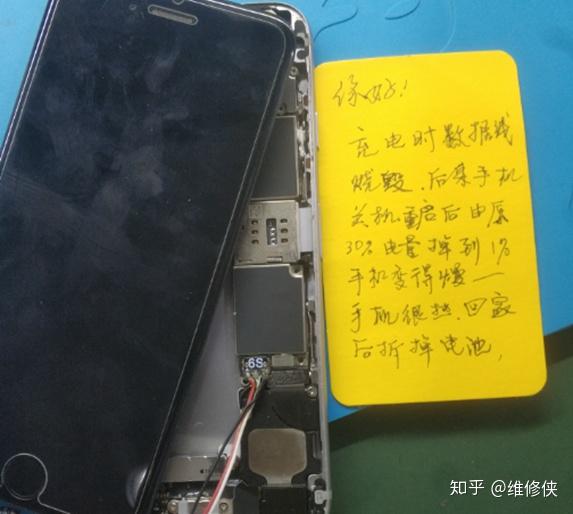 你好!
充电时数据线
烧毁.后某手机
关机重启后由原
30%电量掉到1%
手机变得慢一
手机很热.回家
后拆掉电池,
6S
知乎 @维修侠